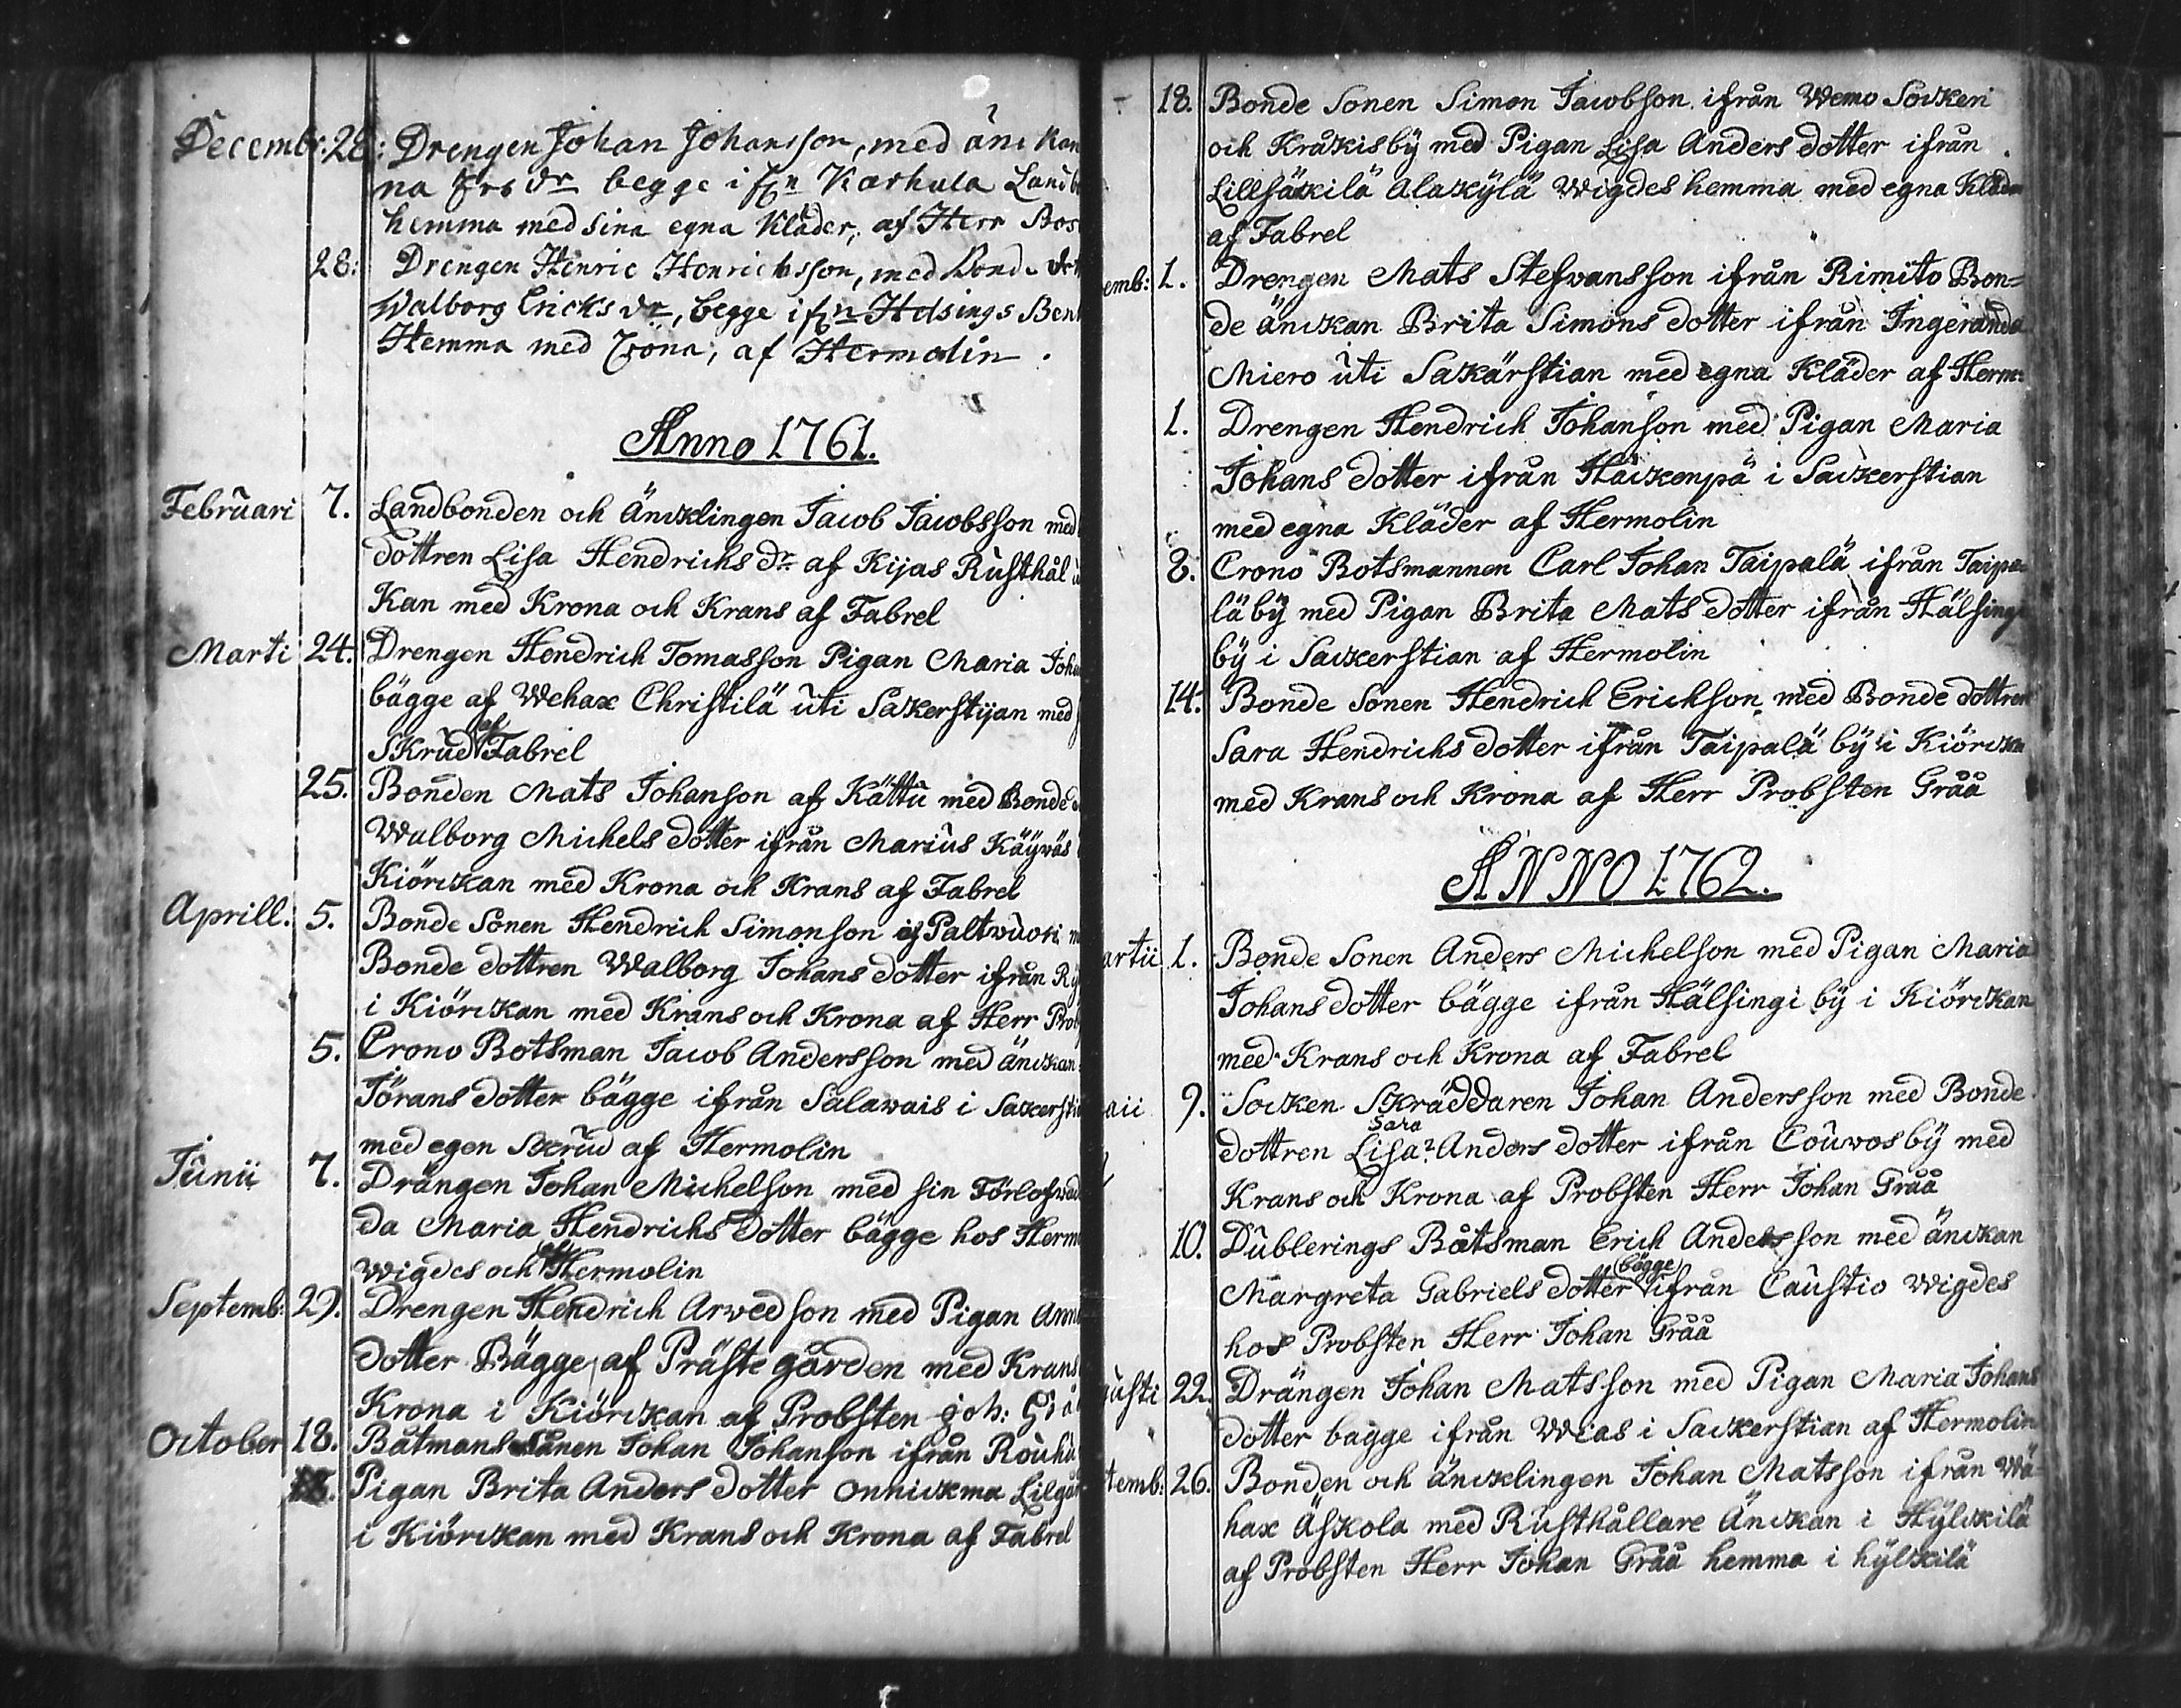 Decembr: 28: Drengen Johan Johansson, med änk
na begge i Karhula Land
hemma med sina egna Kläder, af Herr
28: Drengen Henric Henricksson, med Bonde
Walborg Ericks dr, begge Helsings
Hemma med Cröna, af Hermolin.
Anno 1761.
Februari 7. Landbonden och Äncklingen Jacob Jacobsson med
dottren Lisa Hendrichs dr af Kijas Rusthål
Kan med Krona och Krans af Fabrel
Marti 24. Drengen Hendrich Tomasson Pigan Maria Joha
bägge af Wehax Christilä uti Sakerstijan med
Skrud af Fabrel
25. Bonden Mats Johanson af Kättu med Bonde
Walborg Michels dotter ifrån Marius Käywäs
Kiörckan med Krona och Krans af Fabrel
Aprill. 5. Bonde Sonen Hendrich Simonson Paltwuori
Bonde dottren Walborg Johans dotter ifrån
i Kiörckan med Krans och Krona af Herr Prob
5. Crono Botsman Jacob Andersson med änckan
Jörans dotter bägge ifrån Salawais i Sackersti
med egen Skrud af Hermolin
Junii 7. Drängen Johan Michelson med sin Förlofwa
da Maria Hendrichs dotter bägge hos Herm
wigdes och af Hermolin
Septemb: 29. Drengen Hendrich Arvedson med Pigan Anna
dotter Bägge af Präste gården med Krans
Krona i Kiörckan af Probsten Joh: Grå
October 18. Båtmans Sånen Johan Johanson ifrån
18. Pigan Brita Anders dotter
i Kiörckan med Krans och Krona af Fabrel
18. Bonde Sonen Simon Jacobson ifrån Wemo Socken
och Kråkisby med Pigan Lisa Anders dotter ifrån
Lillsäkilä Alakylä Wigdes hemma med egna Kläder
af Fabrel
emb: 1. Drengen Mats Stefvansson ifrån Rimito Bon=
de änckan Brita Simons dotter ifrån Ingeranda
Miero uti Sakärstian med egna Kläder af Herm:
1. Drengen Hendrich Johanson med Pigan Maria
Johans dotter ifrån Hackenpä i Sackerstian
med egna Kläder af Hermolin
8. Crono Botsmannen Carl Johan Taipalä ifrån Taipa
lä by med Pigan Brita Mats dotter ifrån Hälsing
by i Sackerstian af Hermolin
14. Bonde Sonen Hendrich Erichson med Bonde dottren
Sara Hendrichs dotter ifrån Taipalä by i Kiörckan
med Krans och Krona af Herr Probsten Gråå
ANNO 1762.
artii 1. Bonde Sonen Anders Michelson med Pigan Maria
Johans dotter bägge ifrån Hälsingi by i Kiörckan
med Krans och Krona af Fabrel
aii 9. Socken Skräddaren Johan Andersson med Bonde
Sara
dottren Lisa? Anders dotter ifrån Couwos by med
Krans och Krona af Probsten Herr Johan Gråå
10. Dublerings Båtsman Erich Andersson med änckan
Margreta Gabriels dotter bägge ifrån Caustio wigdes
hos Probsten Herr Johan Gråå
gusti 22. Drängen Johan Matsson med Pigan Maria Johans
dotter bagge ifrån Wias i Sackerstian af Hermolin
temb: 26. Bonden och äncklingen Johan Matsson ifrån Wä=
hax Äskola med Rusthållare Änckan i Hylckilä
af Probsten Herr Johan Gråå hemma i hylkilä